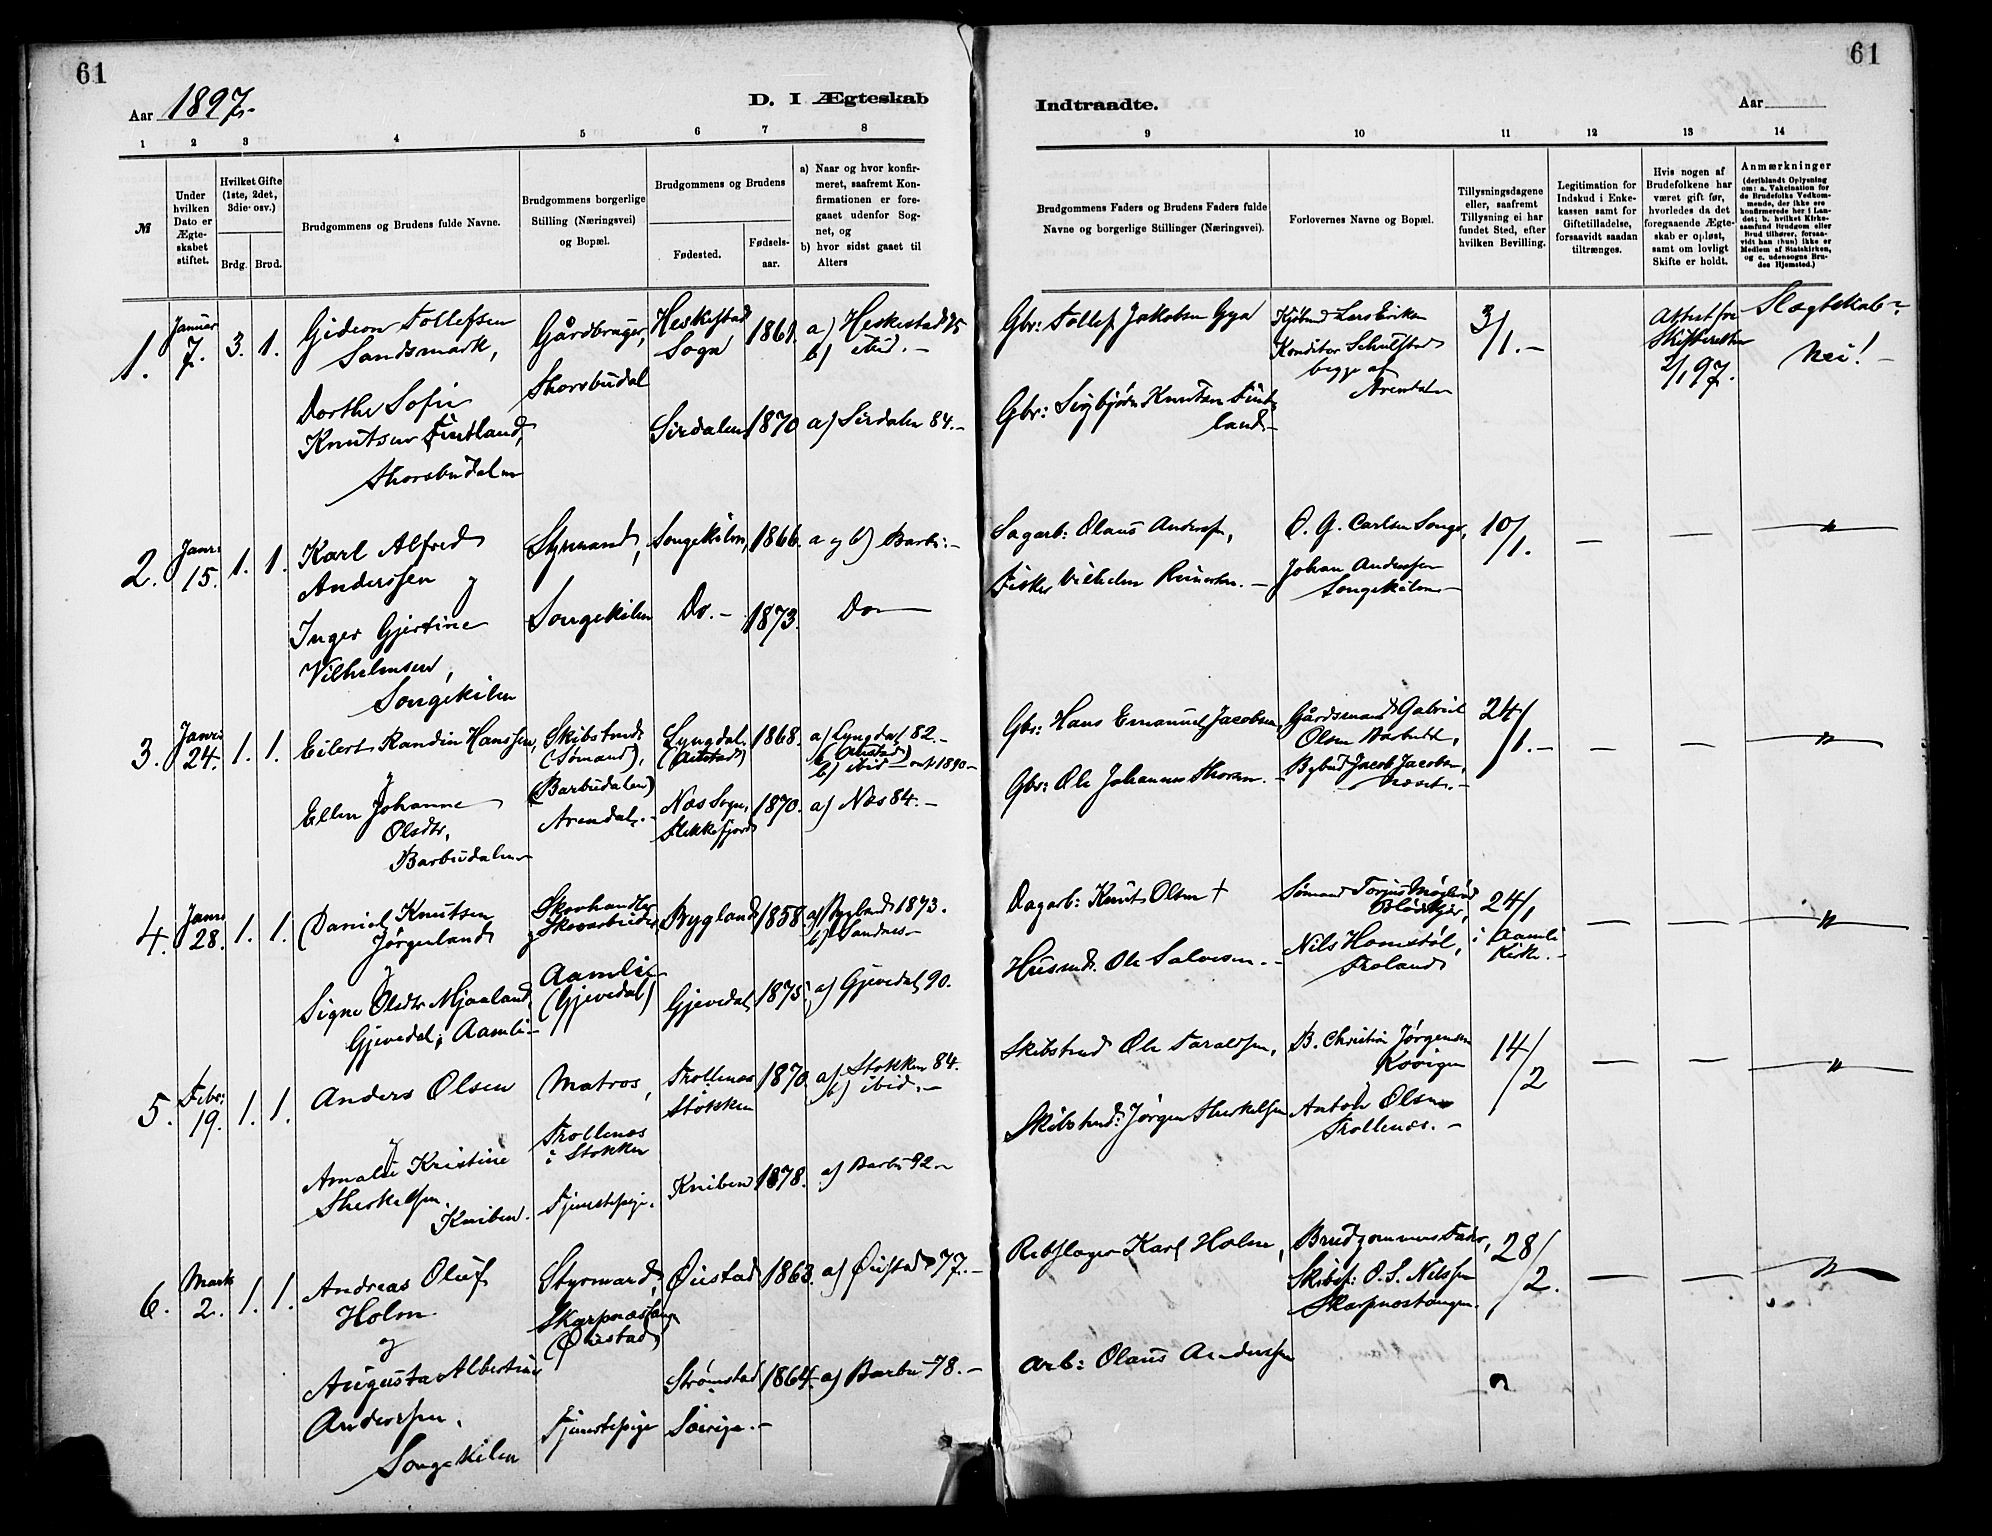 61
Aar 1897.
D. I Ægteskab
1 2 3 4 5 6 7 8
№
Under hvilken Dato er Ægte-skabet stiftet.
Hvilket Gifte (1ste, 2det, 3die osv.)
Brdg. Brud.
Brudgommens og Brudens fulde Navne.
Brudgommens borgerlige Stilling (Næringsvei) og Bopæl.
Brudgommens og Brudens
Fødested.
Fødsels-aar.
a) Naar og hvor konfir-
meret, saafremt Kon-
firmationen er fore-
gaaet udenfor Sog-
net, og
b) hvor sidst gaaet til
Alters
1. Januar 7. 3. 1.
Gideon Tollefsen
Sandsmark,
Gårdbruger,
Thorsbudal
Heskestad
Sogn
1861.
a) Heskestad 75
b) ibid.-
Dorthe Sofie
Knutsen Fintland,
Thorsbudalen
Sirdalen
1870
a) Sirdalen 84.-
2. Janr: 15. 1. 1.
Karl Alfred
Anderssen
og
Styrmand,
Songekilen,
1866.
a og b) Barbu.-
Inger Gjertine
Vilhelmsen,
Songekilen
Songekilen
Do.-
1873.
Do
3. Janr: 24. 1. 1.
Eilert Randin Hanssen,
og
Skibstmd
(Sømand),
(Barbudalen)
Arendal.-
Lyngdal
(Austad)
1868.
a) Lyngdal 82.-
(Austad)
b) ibid 1890-
Ellen Johanne
Olsdtr,
Barbudalen
Næs Sogn,
Flekkefjord
1870.
a) Næs 84.-
4. Janr 28. 1. 1.
Daniel Knutsen
Jørgenland
og
Skovhandler
og Skovarbeider
Aamli
(Gjevedal)
Bygland
1858.
a) Bygland 1873.
b) Sandnes-
Signe Olsdtr Mjaaland
Gjevedal i Aamli-
Gjevedal
1875
a) Gjevedal 90.
5. Febr: 19. 1. 1.
Anders Olsen
og
Matros,
Trollenæs
i Stokken
Trollenæs
Stokken
1870.
a) Stokken 84.
b) ibid.-
Amalie Kristine
Therkelsen.
Kniben.
Tjenestepige.
Kniben
1878.
a) Barbu 92.-
6. Marts 2. 1. 1.
Andreas Oluf
Holm
og
Styrmand,
Skarpnæstang
(Øiestad)
Øiestad
1863.
a) Øiestad 77.-
Augusta Albertine
Anderssen,
Songekilen
Tjenestepige
Strømstad
Sverige.-
1864.
a) Barbu 78.-
61
Indtraadte.
Aar
9 10 11 12 13 14
Brudgommens Faders og Brudens Faders fulde
Navne og borgerlige Stillinger (Næringsvei).
Forlovernes Navne og Bopæl.
Tillysningsdagene
eller, saafremt
Tillysning ei har
fundet Sted, efter
hvilken Bevilling.
Legitimation for
Indskud i Enke-
kassen samt for
Giftetilladelse,
forsaavidt saadan
tiltrænges.
Hvis nogen af
Brudefolkene har
været gift før,
hvorledes da det
foregaaende Ægte-
skab er opløst,
samt om lovligt
Skifte er holdt.
Anmærkninger
(deriblandt Oplysning
om: a. Vakcination for
de Brudefolks Vedkom-
mende, der ikke ere
konfirmerede her i Lan-
det; b. hvilket Kirke-
samfund Brudgom eller
Brud tilhører, forsaa-
vidt han (hun) ikke er
Medlem af Statskirken,
og c. udensogns Bru-
des Hjemsted.)
Gbr: Tollef Jakobsen Gya
Kjøbmd Lars Eriksen
Konditor Schulstad
begge af
Arendal
3/1.-
Attest fra
Skifteretten
2/1 97.
Slægtskab?
Nei!-
Gbr: Sigbjørn Knutsen Fint-
land.-
Sagarb: Olaus Anderssen,
O. G. Carlsen Songe,
10/1.
- - "
Fisker Vilhelm Reinertsen.-
Johan Anderssen
Songekilen
Gbr: Hans Emanuel Jacobsen
Gårdsmand Gabriel
Olsen Barbudal,
24/1.-
- - "
Gbr: Ole Johannes Thorsen.-
Bybud Jacob Jacobsen,
Næset.-
Dagarb: Knut Olsen †
Sømand Torjus Møglestu
Blødekjær,
24/1
i Aamli
Kirke.-
- - "
Husmd. Ole Salvesen.-
Nils Homstøl,
Froland
Skibstmd Ole Taraldsen,
B. Christin Jørgensen
Kovigen
14/2
- - "
Skibstmd: Jørgen Therkelsen
Anton Olsen
Trollenæs.-
Rebslager Karl Holm,
Brudgommens Fader,
Skibsf: O. S. Nilssen
Skarpnæstangen.
28/2.
- - "
Arb: Olaus Anderssen